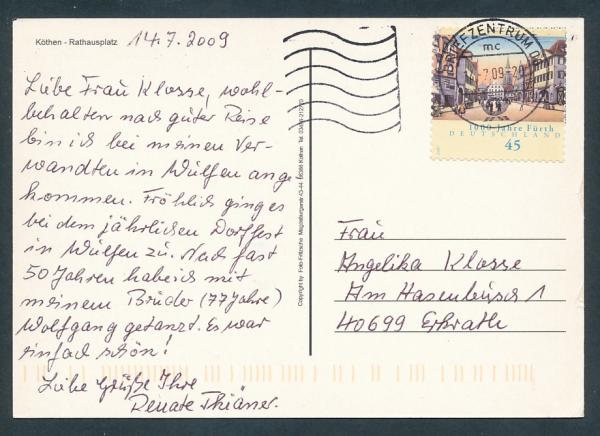 Köthen - Rathausplatz
14.7.2009
Liebe Frau Klosse, wohl-
behalten nach guter Reise
bin ich bei meinen Ver-
wandten in Wülfen ange
kommen. Fröhlich ging es
bei dem jährlichen Dorffest
in Wülfen zu. Nach fast
50 Jahren habe ich mit
meinem Brüder (77 Jahre)
Wolfgang getanzt. Es war
einfach schön!
Liebe Grüße Ihre
Renate Thiäner.
Copyright by Foto-Fritzsche Magdeburgerstr. 43-44 06366 Köthen Tel.
BRIEFZENTRUM
mc
1000 Jahre Fürth
DEUTSCHLAND
45
Frau
Angelika Klosse
Am Hasenbusch 1
40699 Erkrath